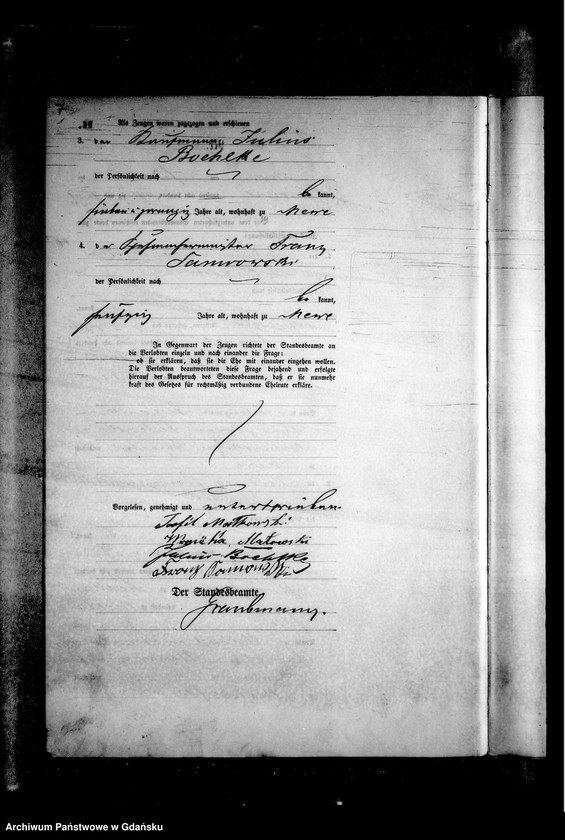 Als Zeugen waren zugezogen und erschienen
3. der Kaufmann Julius
Boehlke
der Persönlichkeit nach
be kannt,
sieben u zwanzig Jahre alt, wohnhaft zu Mewe
4. der Franz
der Persönlichkeit nach
be kannt,
fünfzig Jahre alt, wohnhaft zu Mewe
In Gegenwart der Zeugen richtete der Standesbeamte an
die Verlobten einzeln und nach einander die Frage:
ob sie erklären, daß sie die Ehe mit einander eingehen wollen.
Die Verlobten beantworteten diese Frage bejahend und erfolgte
hierauf der Ausspruch des Standesbeamten, daß er sie nunmehr
kraft des Gesetzes für rechtmäßig verbundene Eheleute erkläre.
Vorgelesen, genehmigt und unterschrieben.
Julius Boehlke
Franz
Der Standesbeamte
Archiwum Państwowe w Gdańsku